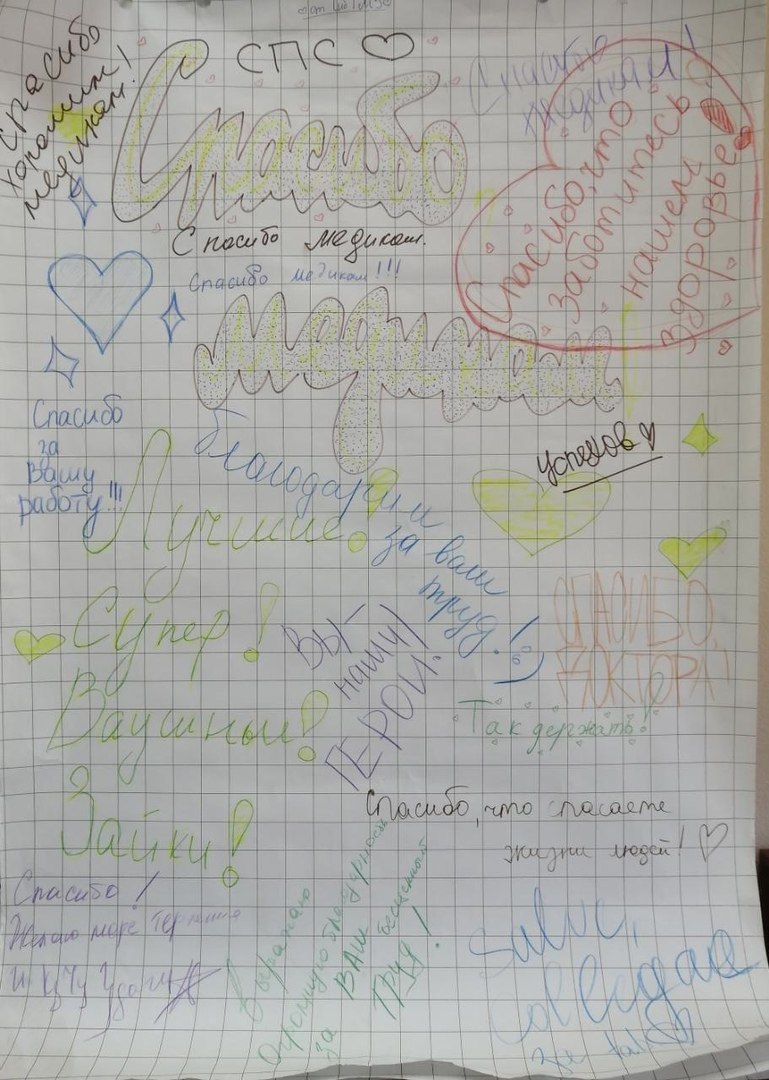 Спасибо
хорошим
медикам!
СПС
Спасибо
медикам!
Спасибо
Спасибо, что
заботитесь о
нашем
здоровье
Спасибо медикам.
Спасибо медикам!!!
медикам
Спасибо
за
Вашу
работу!!!
Благодарим
за ваш
труд!
успехов
Лучшие!
Супер!
Ваушные!
Зайки!
ВЫ-
наши
ГЕРОИ!
СПАСИБО,
ДОКТОРА!
Так держать!
Спасибо, что спасаете
жизни людей!
Спасибо!
Желаю море терпения
и кучу удачи
Выражаю
огромную благодарность
за ВАШ бесценный
Труд!
Salve,
collegae